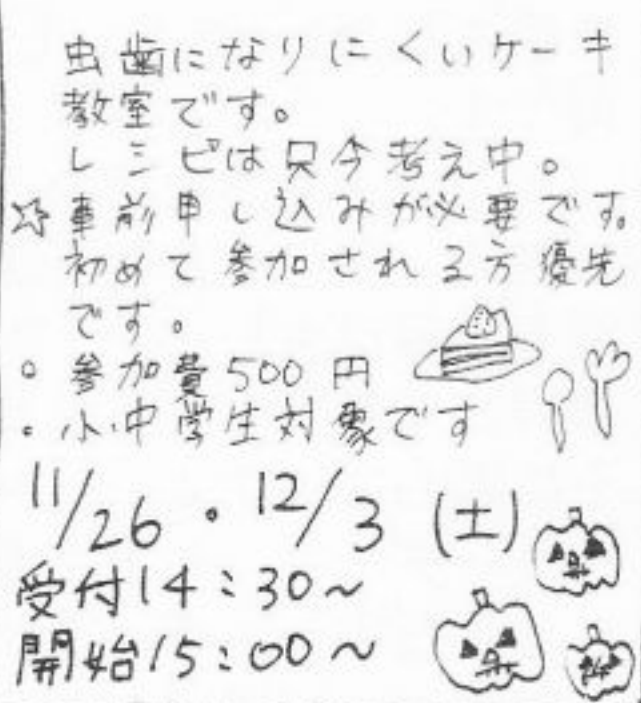 虫歯になりにくいケーキ
教室です。
レシピは只今考え中。
☆事前申し込みが必要です。
初めて参加される方優先
です。
○ 参加費500円
・小中学生対象です
11/26・12/3 (土)
受付14:30～
開始15:00～